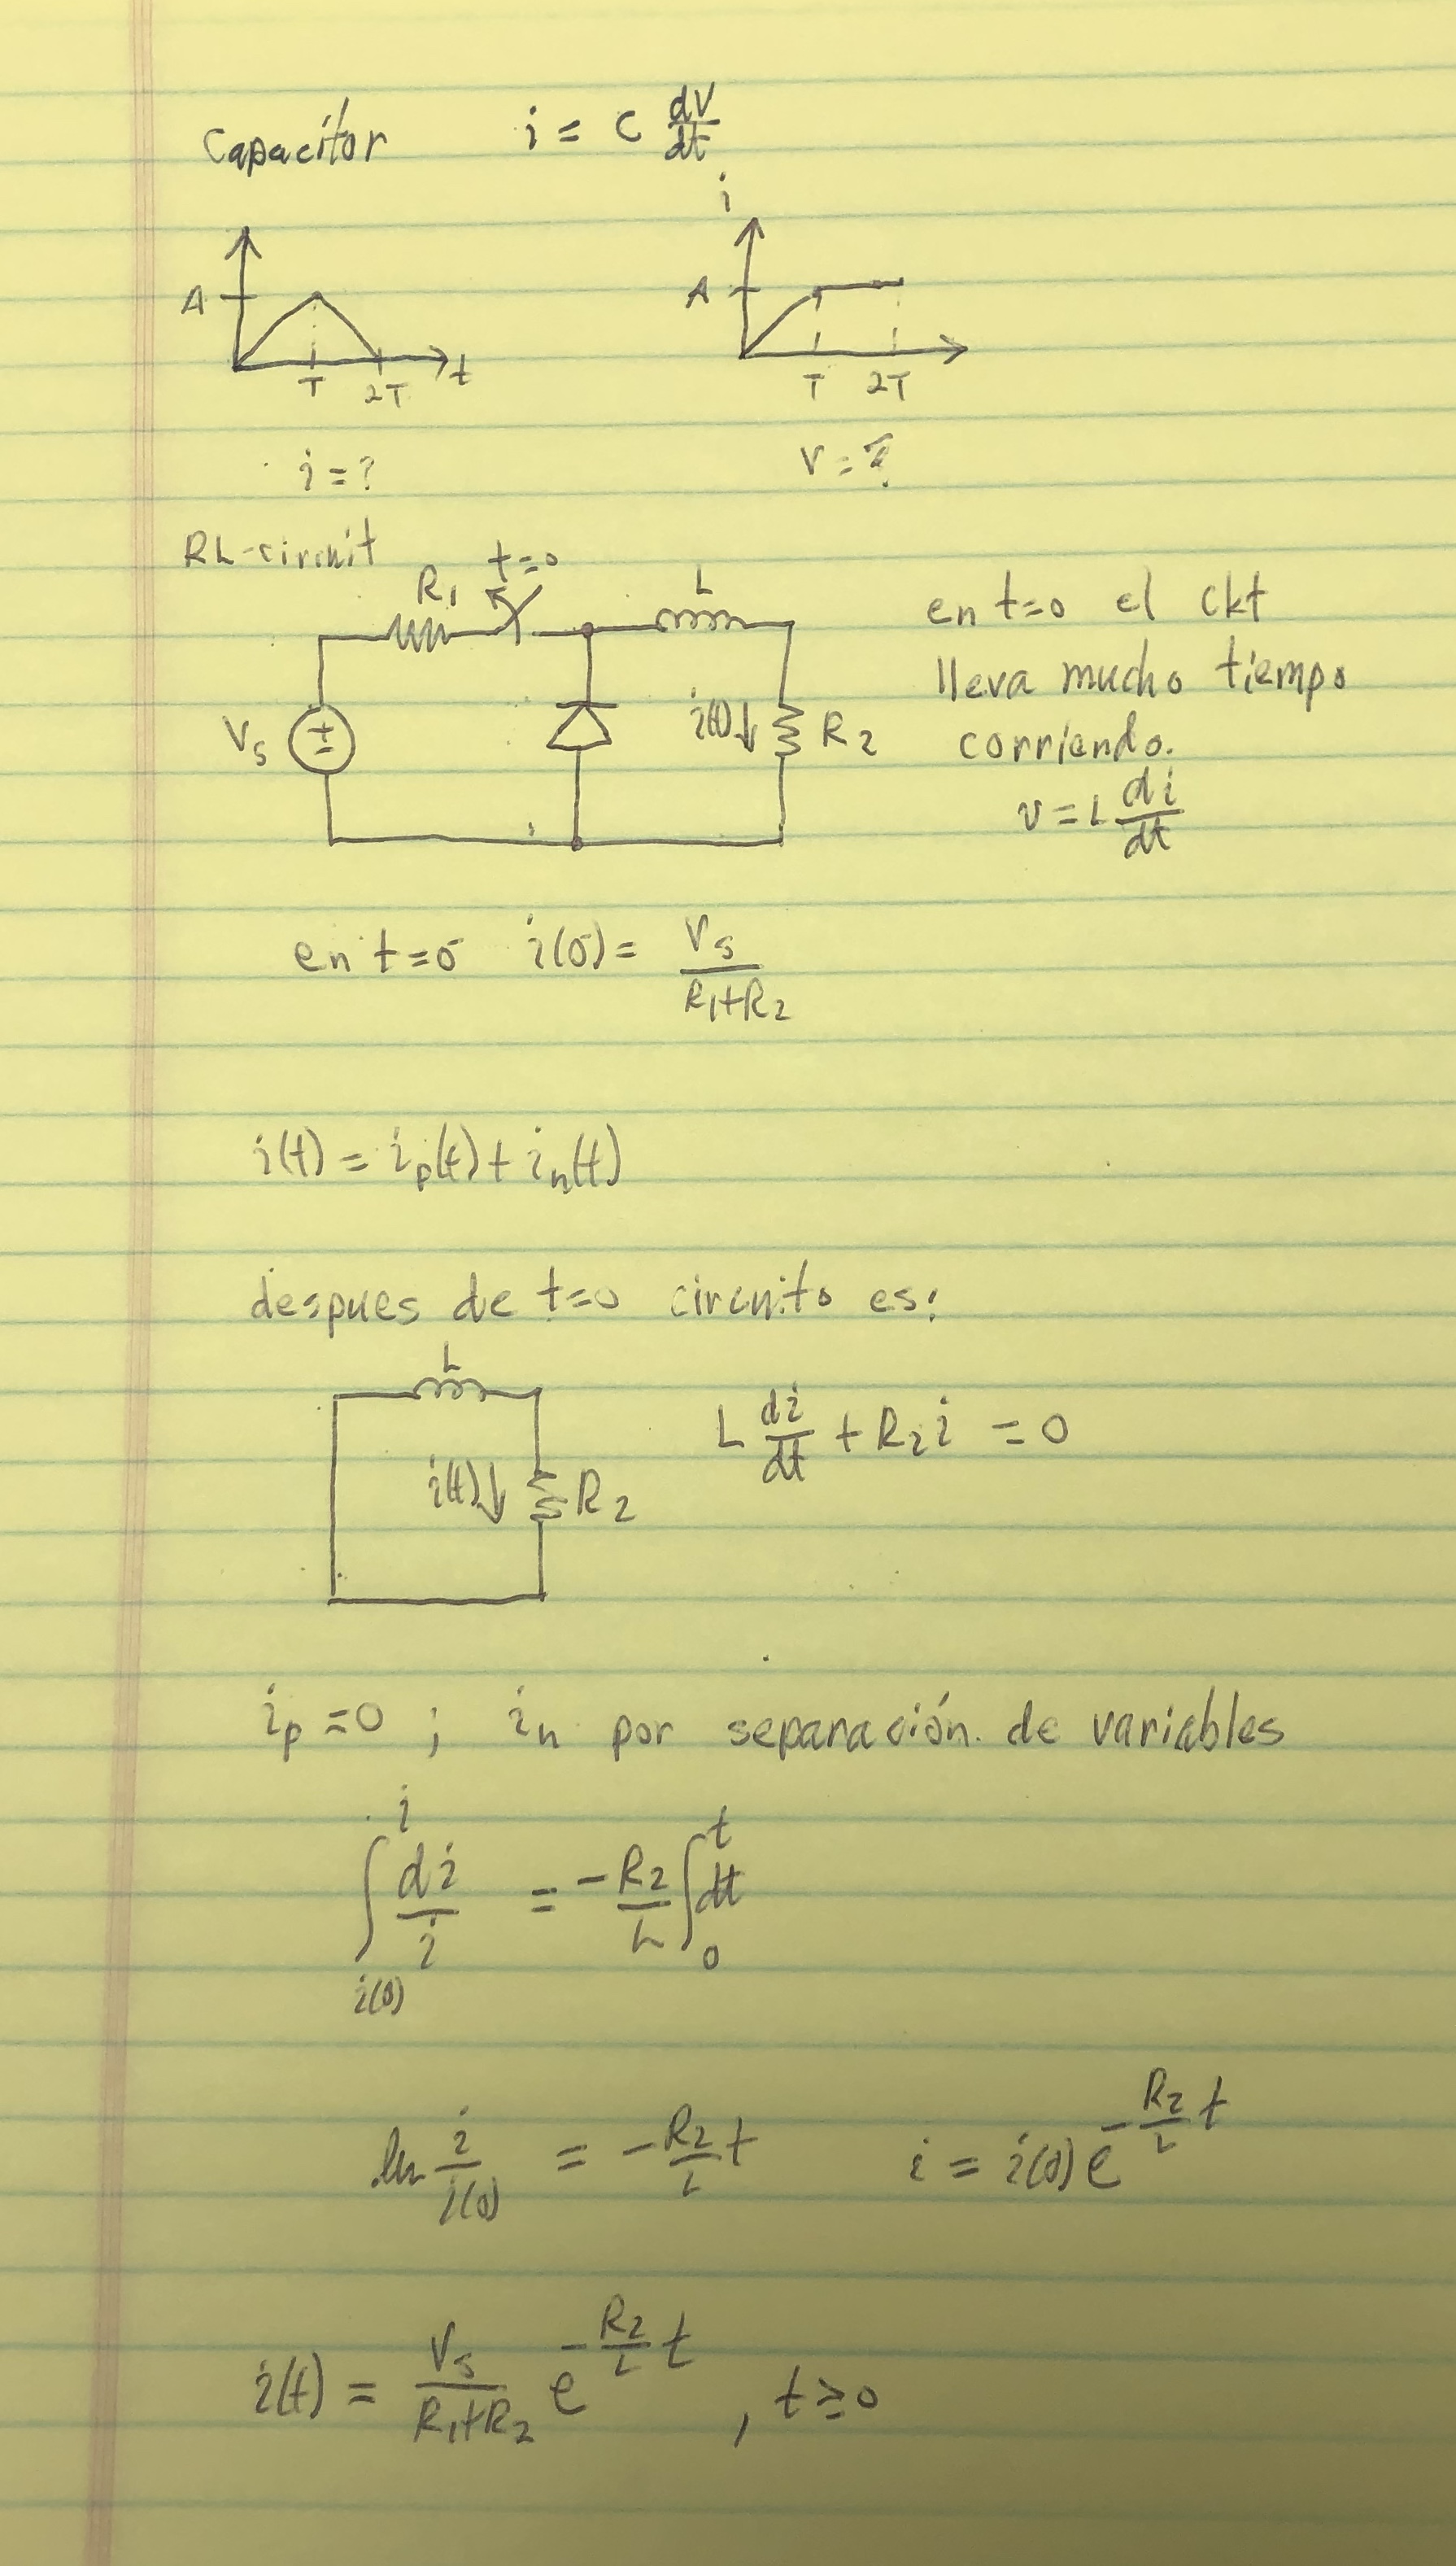 Capacitor i = C dV/dt
i
A A
T 2T t T 2T
i = ? V = ?
RL-circuit
R1 t=0 L
en t=0 el ckt
lleva mucho tiempo
Vs + - i(t)↓ R2 corriendo.
v = L di/dt
en t=0⁻ i(0⁻) = Vs/(R1+R2)
i(t) = ip(t) + in(t)
despues de t=0 circuito es:
L
i(t)↓ R2 L di/dt + R2 i = 0
ip = 0 ; in por separación de variables
∫_{i(0)}^{i} di/i = -R2/L ∫_{0}^{t} dt
ln i/i(0) = -R2/L t i = i(0) e^{-R2/L t}
i(t) = Vs/(R1+R2) e^{-R2/L t} , t ≥ 0